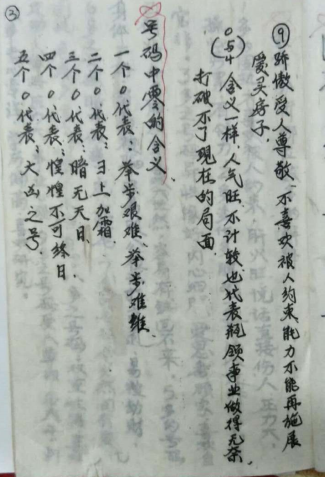 ⑨骄傲受人尊敬、不喜欢被人约束、能力不能再施展
爱买房子、
(054)含义一样、人气旺、不计较也代表瓶领事业做得无奈、
打破不了现在的局面
号码中零的含义、
一个0代表:举步艰难、举步难维、
二个0代表:雪上加霜、
三个0代表:暗无天日、
四个0代表:惶惶不可终日、
五个0代表:大凶之号、
③